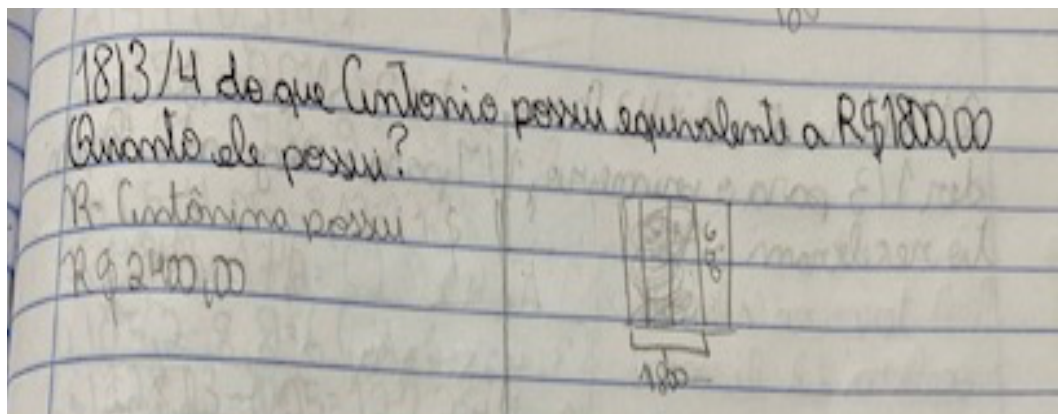 18)3/4 do que Antonio possui equivalente a R$1800,00
Quanto ele possui?
R- Antônino possui
R$ 2400,00
600
1800